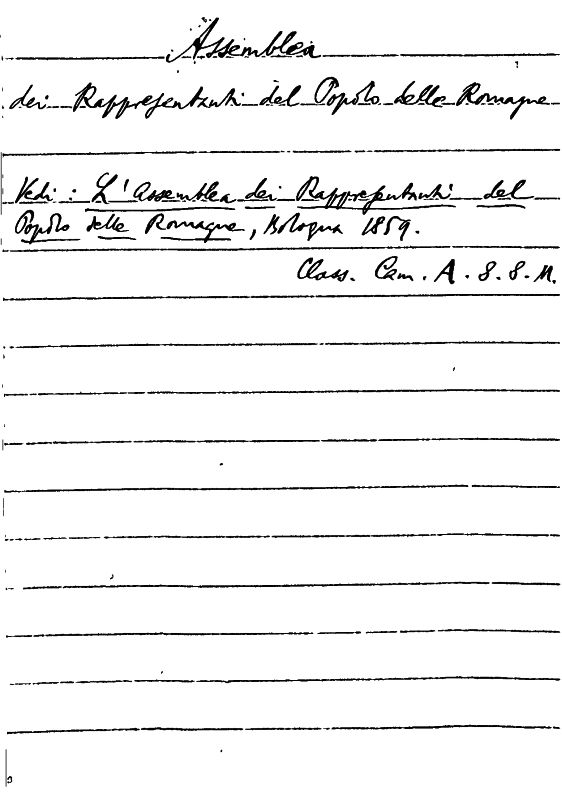 Assemblea
dei Rappresentanti del Popolo delle Romagne
Vedi: L'Assemblea dei Rappresentanti del
Popolo delle Romagne, Bologna 1859.
Class. Cam. A. 8. 8. M.